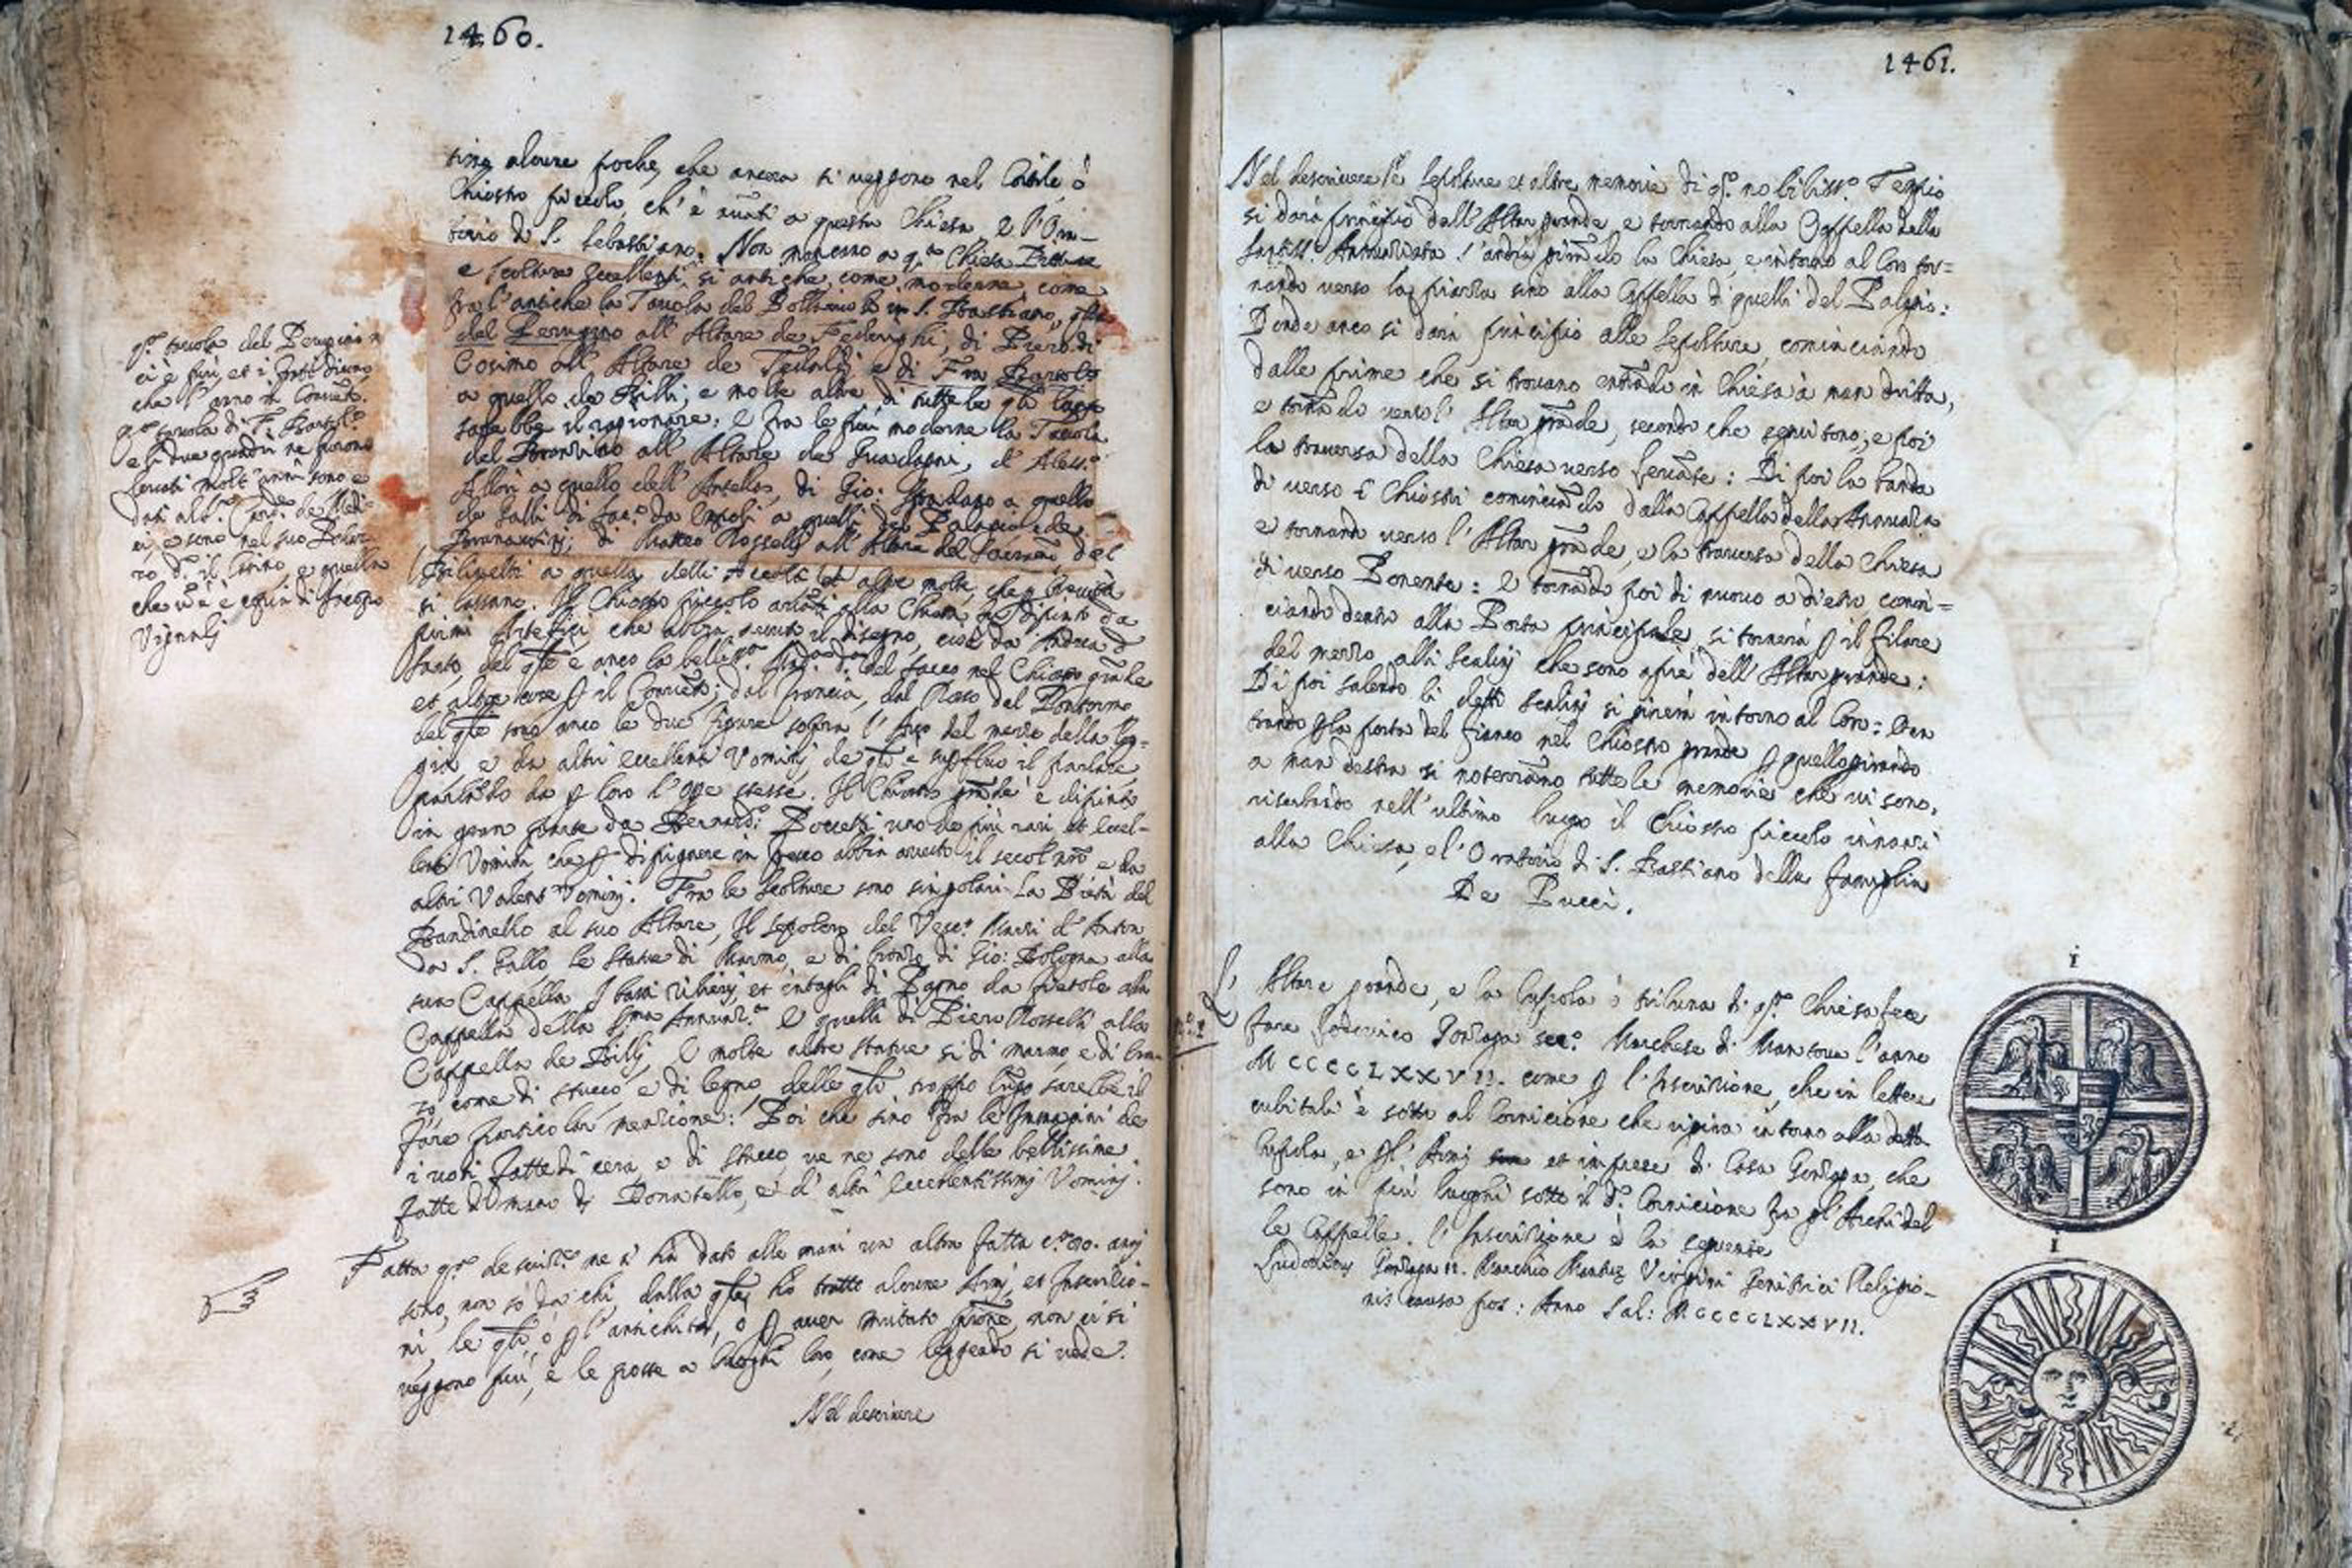 1460.
tina alcune poche, che ancora si veggono nel Cortile ò
Chiostro piccolo, ch' è auāti a questa Chiesa, e l'Ora-
torio di S. Sebastiano. Non mancano a q.ta Chiesa Pitture
e scolture eccellenti, si antiche, come moderne, come
fra l'antiche la Tauola del in S. Bastiano,
del Perugino all' Altare de Federighi, di Piero di
Cosimo all' Altare de Tedaldi e di Fra Bartolo
a quello de Billi; e molte altre di tutte le qli lūgo
sarebbe il ragionare; e fra le più moderne la Tauola
del Bronzino all' Altare de Guadagni, d' Aless.o
Allori a quello dell' Antella, di Gio: a quello
de Galli di Iac.o da Empoli a quelli de Palagio e de
di Matteo Rosselli all' Altare del
a quella delli et altre molte, che p breuità
si lassano. Il Chiostro piccolo auāti alla Chiesa è dipinto da
primi Artefici, che abbia auuto il disegno, cioè da Andrea d
Sarto, del qle è anco la belliss.a del Sacco nel Chiostro grāde
et altre cose p il Conuēto; dal Francia, dal Rosso dal Pontormo
del qle sono anco le due figure sopra l' Arco del mezzo della log=
gia e da altri eccellenti Vomini de qli è supfluo il parlare
parlādo da p loro l' ope stesse. Il Chiostro grāde è dipinto
in gran parte da Bernard.o Poccetti uno de più rari, et eccel-
lenti Vomini, che p dipignere in fresco abbia auuto il secol nrō e da
altri Valenti Vomini. Fra le scolture sono singolari La Pietà del
Bandinello al suo Altare, Il sepolcro del Vesc.o Marzi d' Anton
da S. Gallo le statue di Marmo, e di bronzo di Gio: Bologna alla
sua Cappella I bassi rilieui, et intagli di Pagno da Fiesole alla
Cappella della S.ma Annunz.ta E quelli di Piero Rosselli alla
Cappella de Billi, E molte altre statue si di marmo, e di bron-
zo come di stucco, e di legno, delle qli troppo lūgo sarebbe il
fare particolar menzione: Poi che sino fra le Immagini de
i uoti fatte di cera, e di stucco ue ne sono delle bellissime
fatte di mano di Donatello, e d' altri Eccellentissimi Vomini.
q.ta tauola del Perugino n
ci è più, et i Frati dicono
che l' anno in Conuēto.
q.ta tauola di F. Bartol.o
e li due quadri ne furono
leuati molt' anni sono e
dati al S.r Card.e de Medi-
ci, e sono nel suo
d.o il Casino, e quella
che u' è è copia di Iacopo
Vignali
Fatta q.ta descriz.e ne s' hà dato alle mani un altra fatta c.a 90. anni
sono, non sò da chi, dalla qle hò tratto alcune Armi, et Inscrizio-
ni le qli, ò p l' antichità, o p auer mutato prōne, non ci si
veggono più, e le hò poste a luoghi loro, come leggendo si uede.
Nel descriuere
1461.
Nel descriuere le sepolture et altre memorie di q.to nobiliss.o Tempio
si darà principio dall' Altar grande e tornando alla Cappella della
Santiss.a Annunziata s' andrà girādo la Chiesa, e intorno al Coro tor=
nando verso la piazza sino alla Cappella di quelli del Palagio:
Donde anco si darà principio alle sepolture, cominciando
dalle prime che si trouano entrādo in Chiesa à man dritta,
e tornādo verso l' Altar grāde, secondo che seguitono, e poi
la trauersa della Chiesa verso Leuāte: Di poi la banda
di verso i Chiostri cominciādo dalla Cappella della Annunziata
e tornando verso l' Altar grāde, e la trauersa della Chiesa
di verso Ponente: E tornādo poi di nuouo a dietro comin=
ciando dentro alla Porta principale, si tornerà p il filare
del mezzo alli scalini che sono appiè dell' Altar grande:
Di poi salendo li detti scalini si girerà intorno al Coro: Den
trando p la porta del fianco nel Chiostro grande p quello girando
a man destra si noteranno tutte le memorie che ui sono,
riserbando nell' ultimo luogo il Chiostro piccolo innanzi
alla Chiesa, e l' Oratorio di S. Bastiano della famiglia
De Pucci.
L' Altare grande, e la Cupola ò tribuna di q.ta Chiesa fece
fare Lodouico Gonzaga sec.o Marchese di Mantoua l' anno
MCCCCLXXVII. come p l' Inscrizione, che in lettere
cubitali è sotto al Cornicione che rigira intorno alla detta
Cupola, e p l' Armi et imprese di Casa Gonzaga, che
sono in più luoghi sotto il d.o Cornicione fra gl' Archi del
le Cappelle. l' Inscrizione è la seguente
Ludouicus Gonzaga II. Marchio Mantuę Virgini Genitrici Religio-
nis causa pos: Anno Sal: MCCCCLXXVII.
n.o 1
1
1